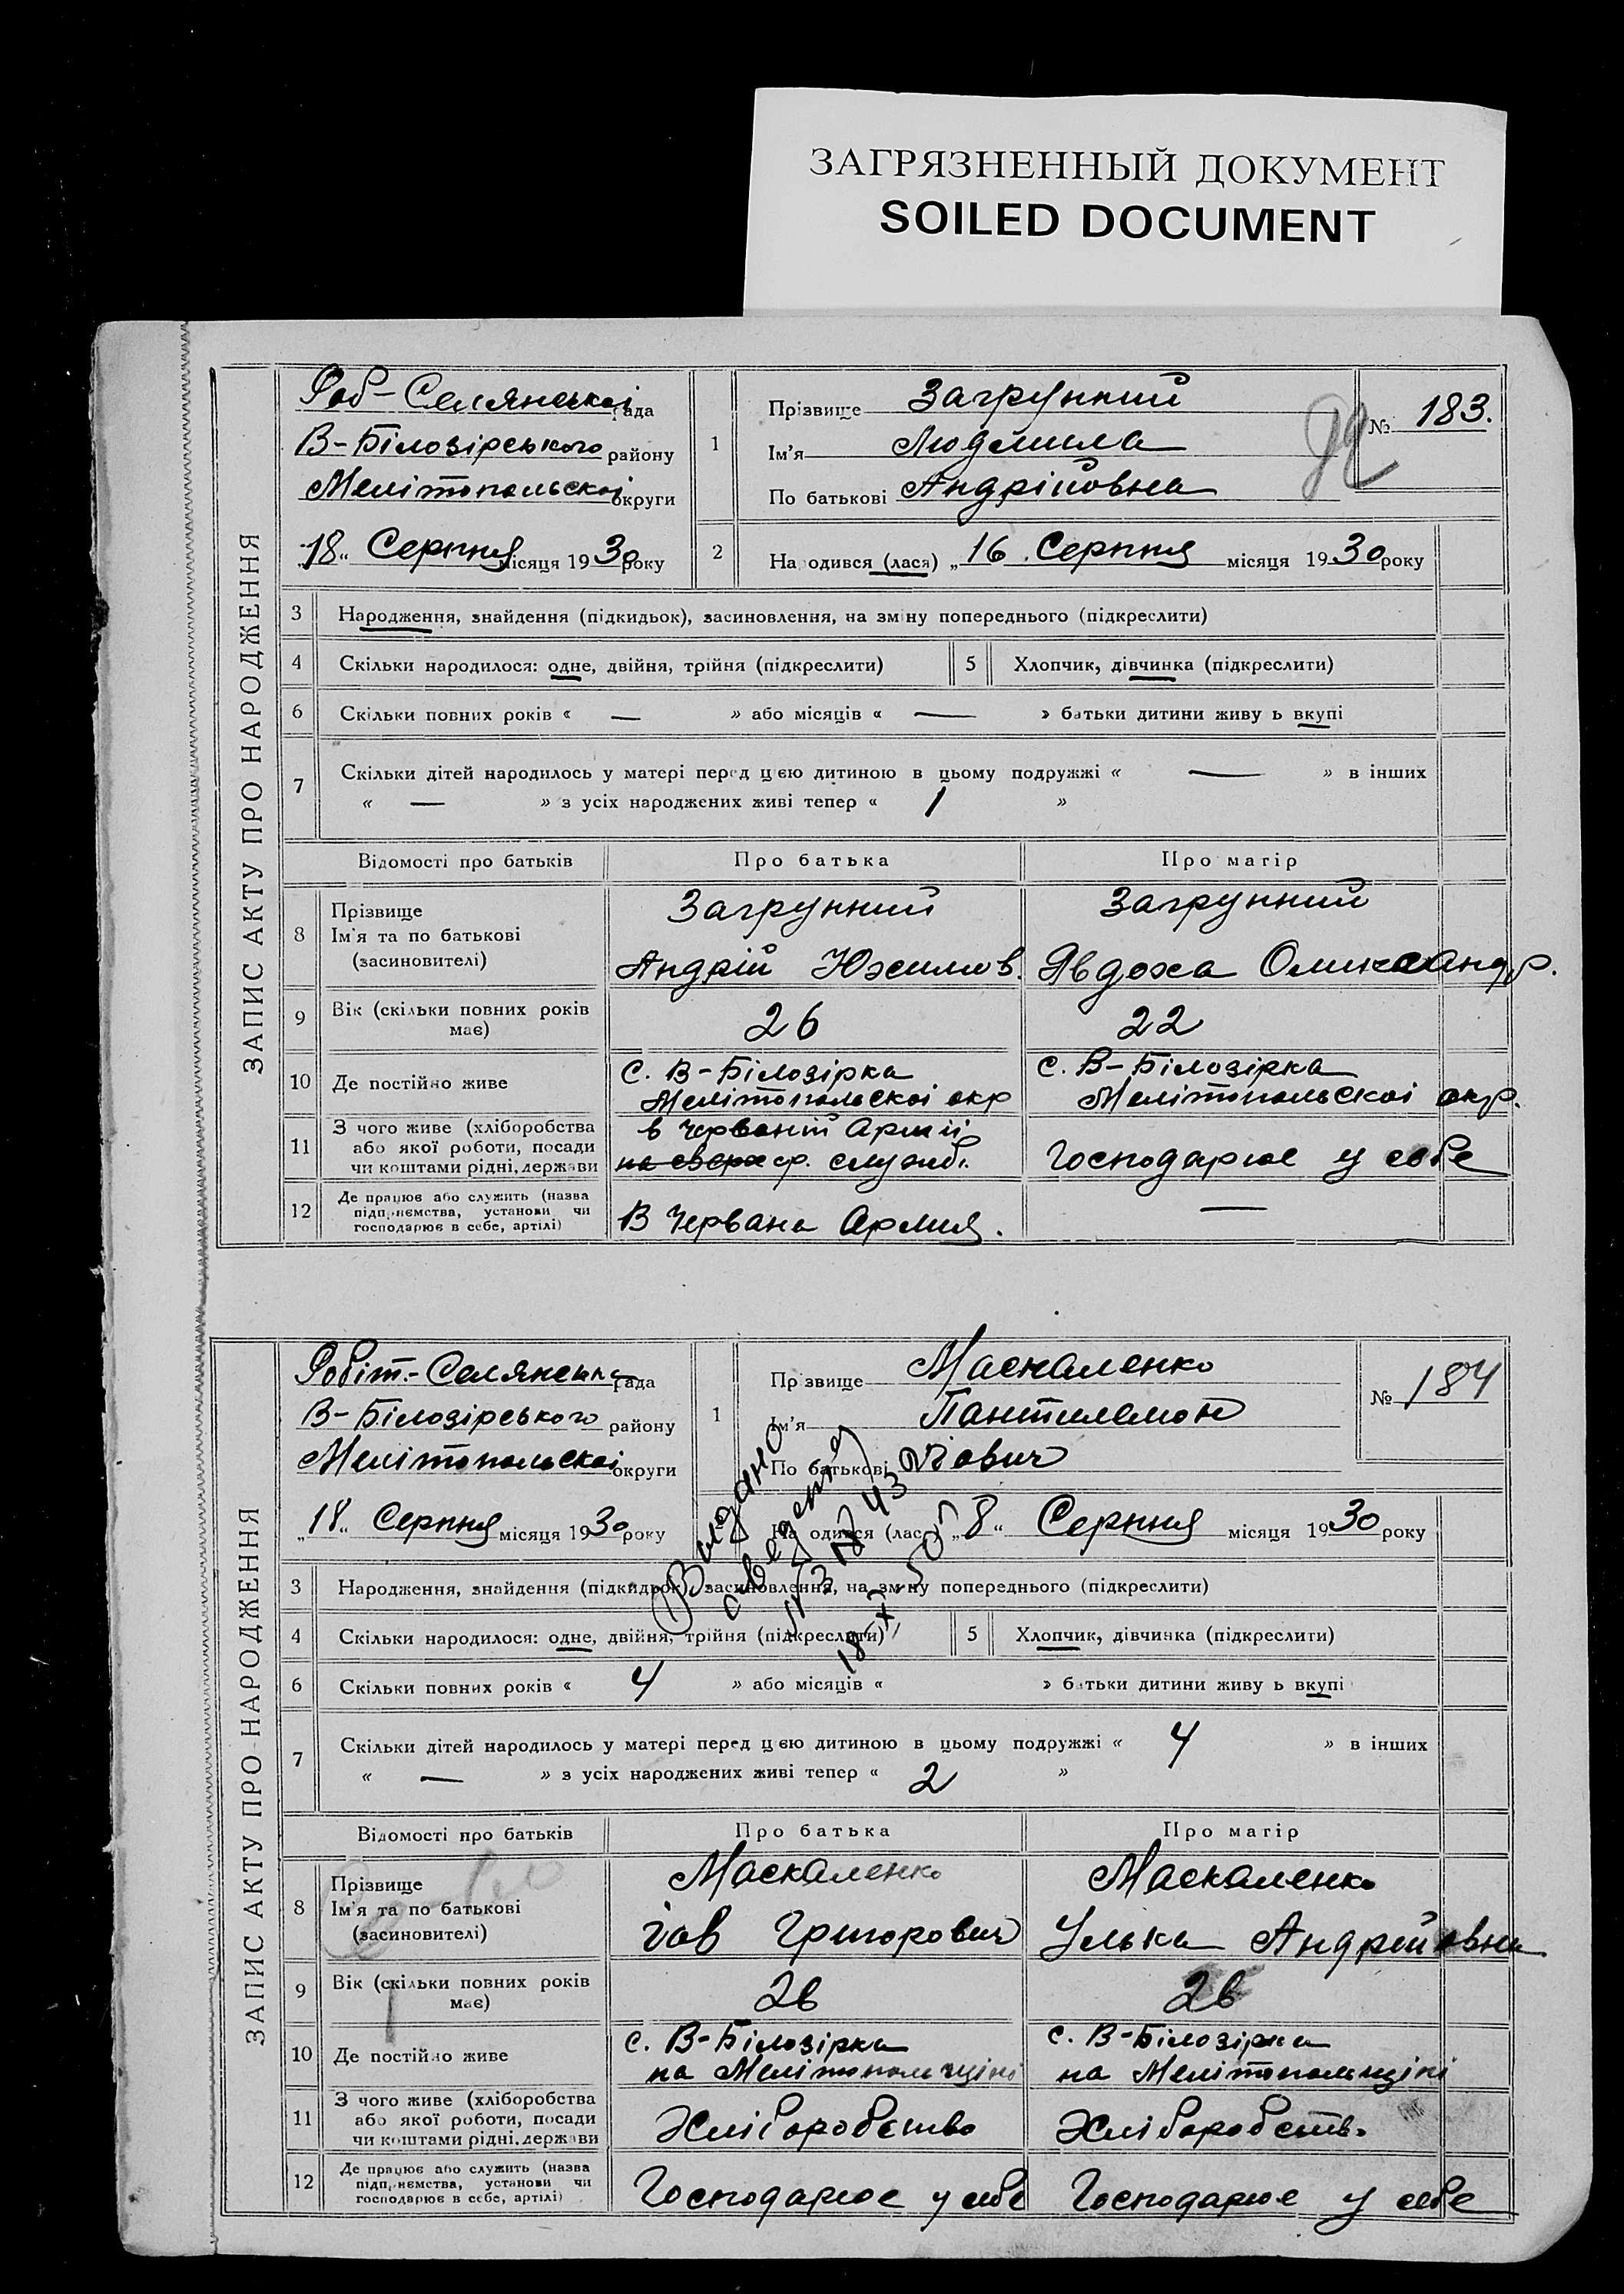 ЗАГРЯЗНЕННЫЙ ДОКУМЕНТ
SOILED DOCUMENT
ЗАПИС АКТУ ПРО НАРОДЖЕННЯ
Роб-Селянської рада
В-Білозірського району
Мелітопольскої округи
„18“ Серпня місяця 1930 року
1
Прізвище Загрунний
Ім'я Людмила
По батькові Андріповна
№ 183.
2 Народився (лася) „16. Серпня місяця 1930 року
3 Народження, знайдення (підкидьок), засиновлення, на зміну попереднього (підкреслити)
4 Скільки народилося: одне, двійня, трійня (підкреслити) 5 Хлопчик, дівчинка (підкреслити)
6 Скільки повних років « — » або місяців « — » батьки дитини живуть вкупі
7 Скільки дітей народилось у матері перед цією дитиною в цьому подружжі « — » в інших
« — » з усіх народжених живі тепер « 1 »
Відомості про батьків Про батька Про матір
8 Прізвище
Ім'я та по батькові
(засиновителі)
Загрунний
Андрій Юхимов.
Загрунний
Явдоха Олександр.
9 Вік (скільки повних років має) 26 22
10 Де постійно живе
с. В-Білозірка
Мелітопольскої окр
с. В-Білозірка
Мелітопольскої окр.
11 З чого живе (хліборобства
або якої роботи, посади
чи коштами рідні, держави
в Червоній Армії
ср. службі.
Господарює у себе
12 Де працює або служить (назва
підприємства, установи чи
господарює в себе, артілі)
В Червана Армия.
—
ЗАПИС АКТУ ПРО НАРОДЖЕННЯ
Робіт.-Селянська рада
В-Білозірського району
Мелітопольскої округи
„18“ Серпня місяця 1930 року
1
Прізвище Маскаленко
Ім'я Пантилемон
По батькові Йович
№ 184
2 Народився (лася) „8“ Серпня місяця 1930 року
Видано
сведения
18-X-50
3 Народження, знайдення (підкидьок), засиновлення, на зміну попереднього (підкреслити)
4 Скільки народилося: одне, двійня, трійня (підкреслити) 5 Хлопчик, дівчинка (підкреслити)
6 Скільки повних років « 4 » або місяців « » батьки дитини живуть вкупі
7 Скільки дітей народилось у матері перед цією дитиною в цьому подружжі « 4 » в інших
« — » з усіх народжених живі тепер « 2 »
Відомості про батьків Про батька Про матір
8 Прізвище
Ім'я та по батькові
(засиновителі)
Маскаленко
Йов Григорович
Маскаленко
Улька Андрійовна
9 Вік (скільки повних років має) 26 26
10 Де постійно живе
с. В-Білозірка
на Мелітопольщіні
с. В-Білозірка
на Мелітопольщіні
11 З чого живе (хліборобства
або якої роботи, посади
чи коштами рідні, держави
Хліборобство
Хліборобств.
12 Де працює або служить (назва
підприємства, установи чи
господарює в себе, артілі)
Господарює у себе
Господарює у себе